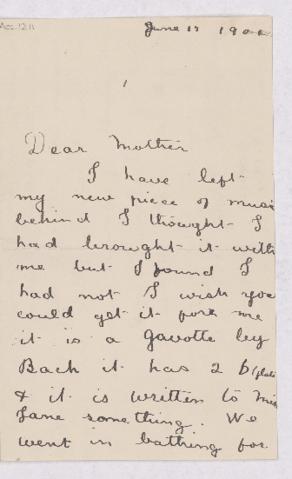 Acc.1211
June 17 1900
Dear Mother
I have left
my new piece of music
behind I thought I
had brought it with
me but I found I
had not I wish you
could get it for me
it is a gavotte by
Bach it has 2 b(flats
& it is written to Miss
Jane something. We
went in bathing for